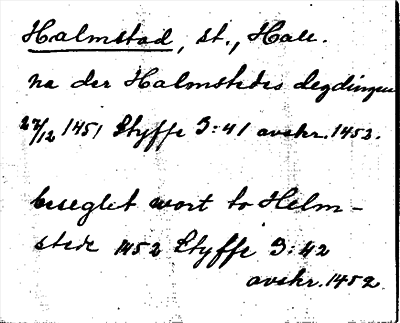 Halmstad, st., Hall.
na der Halmstedes degdingen
27/12 1451 Styffe 3:41 avskr. 1452.
beseglet wort to Helm-
stede 1452 Styffe 3:42
avskr. 1452